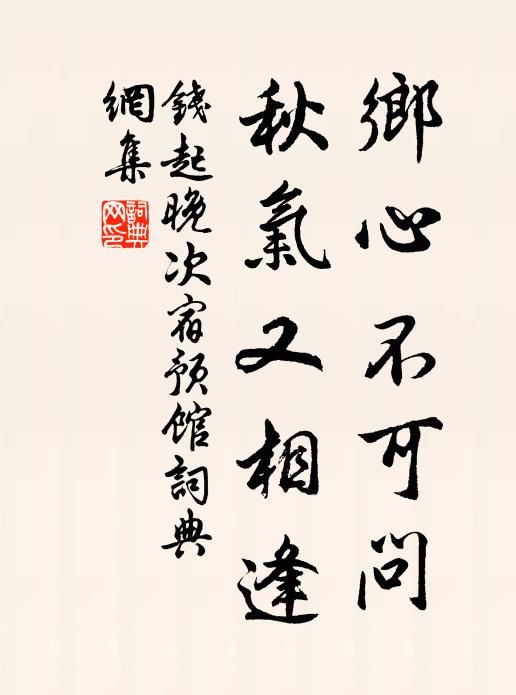 鄉心不可問
秋氣又相逢
錢起晚次宿預館詞典
網集
詞典網印